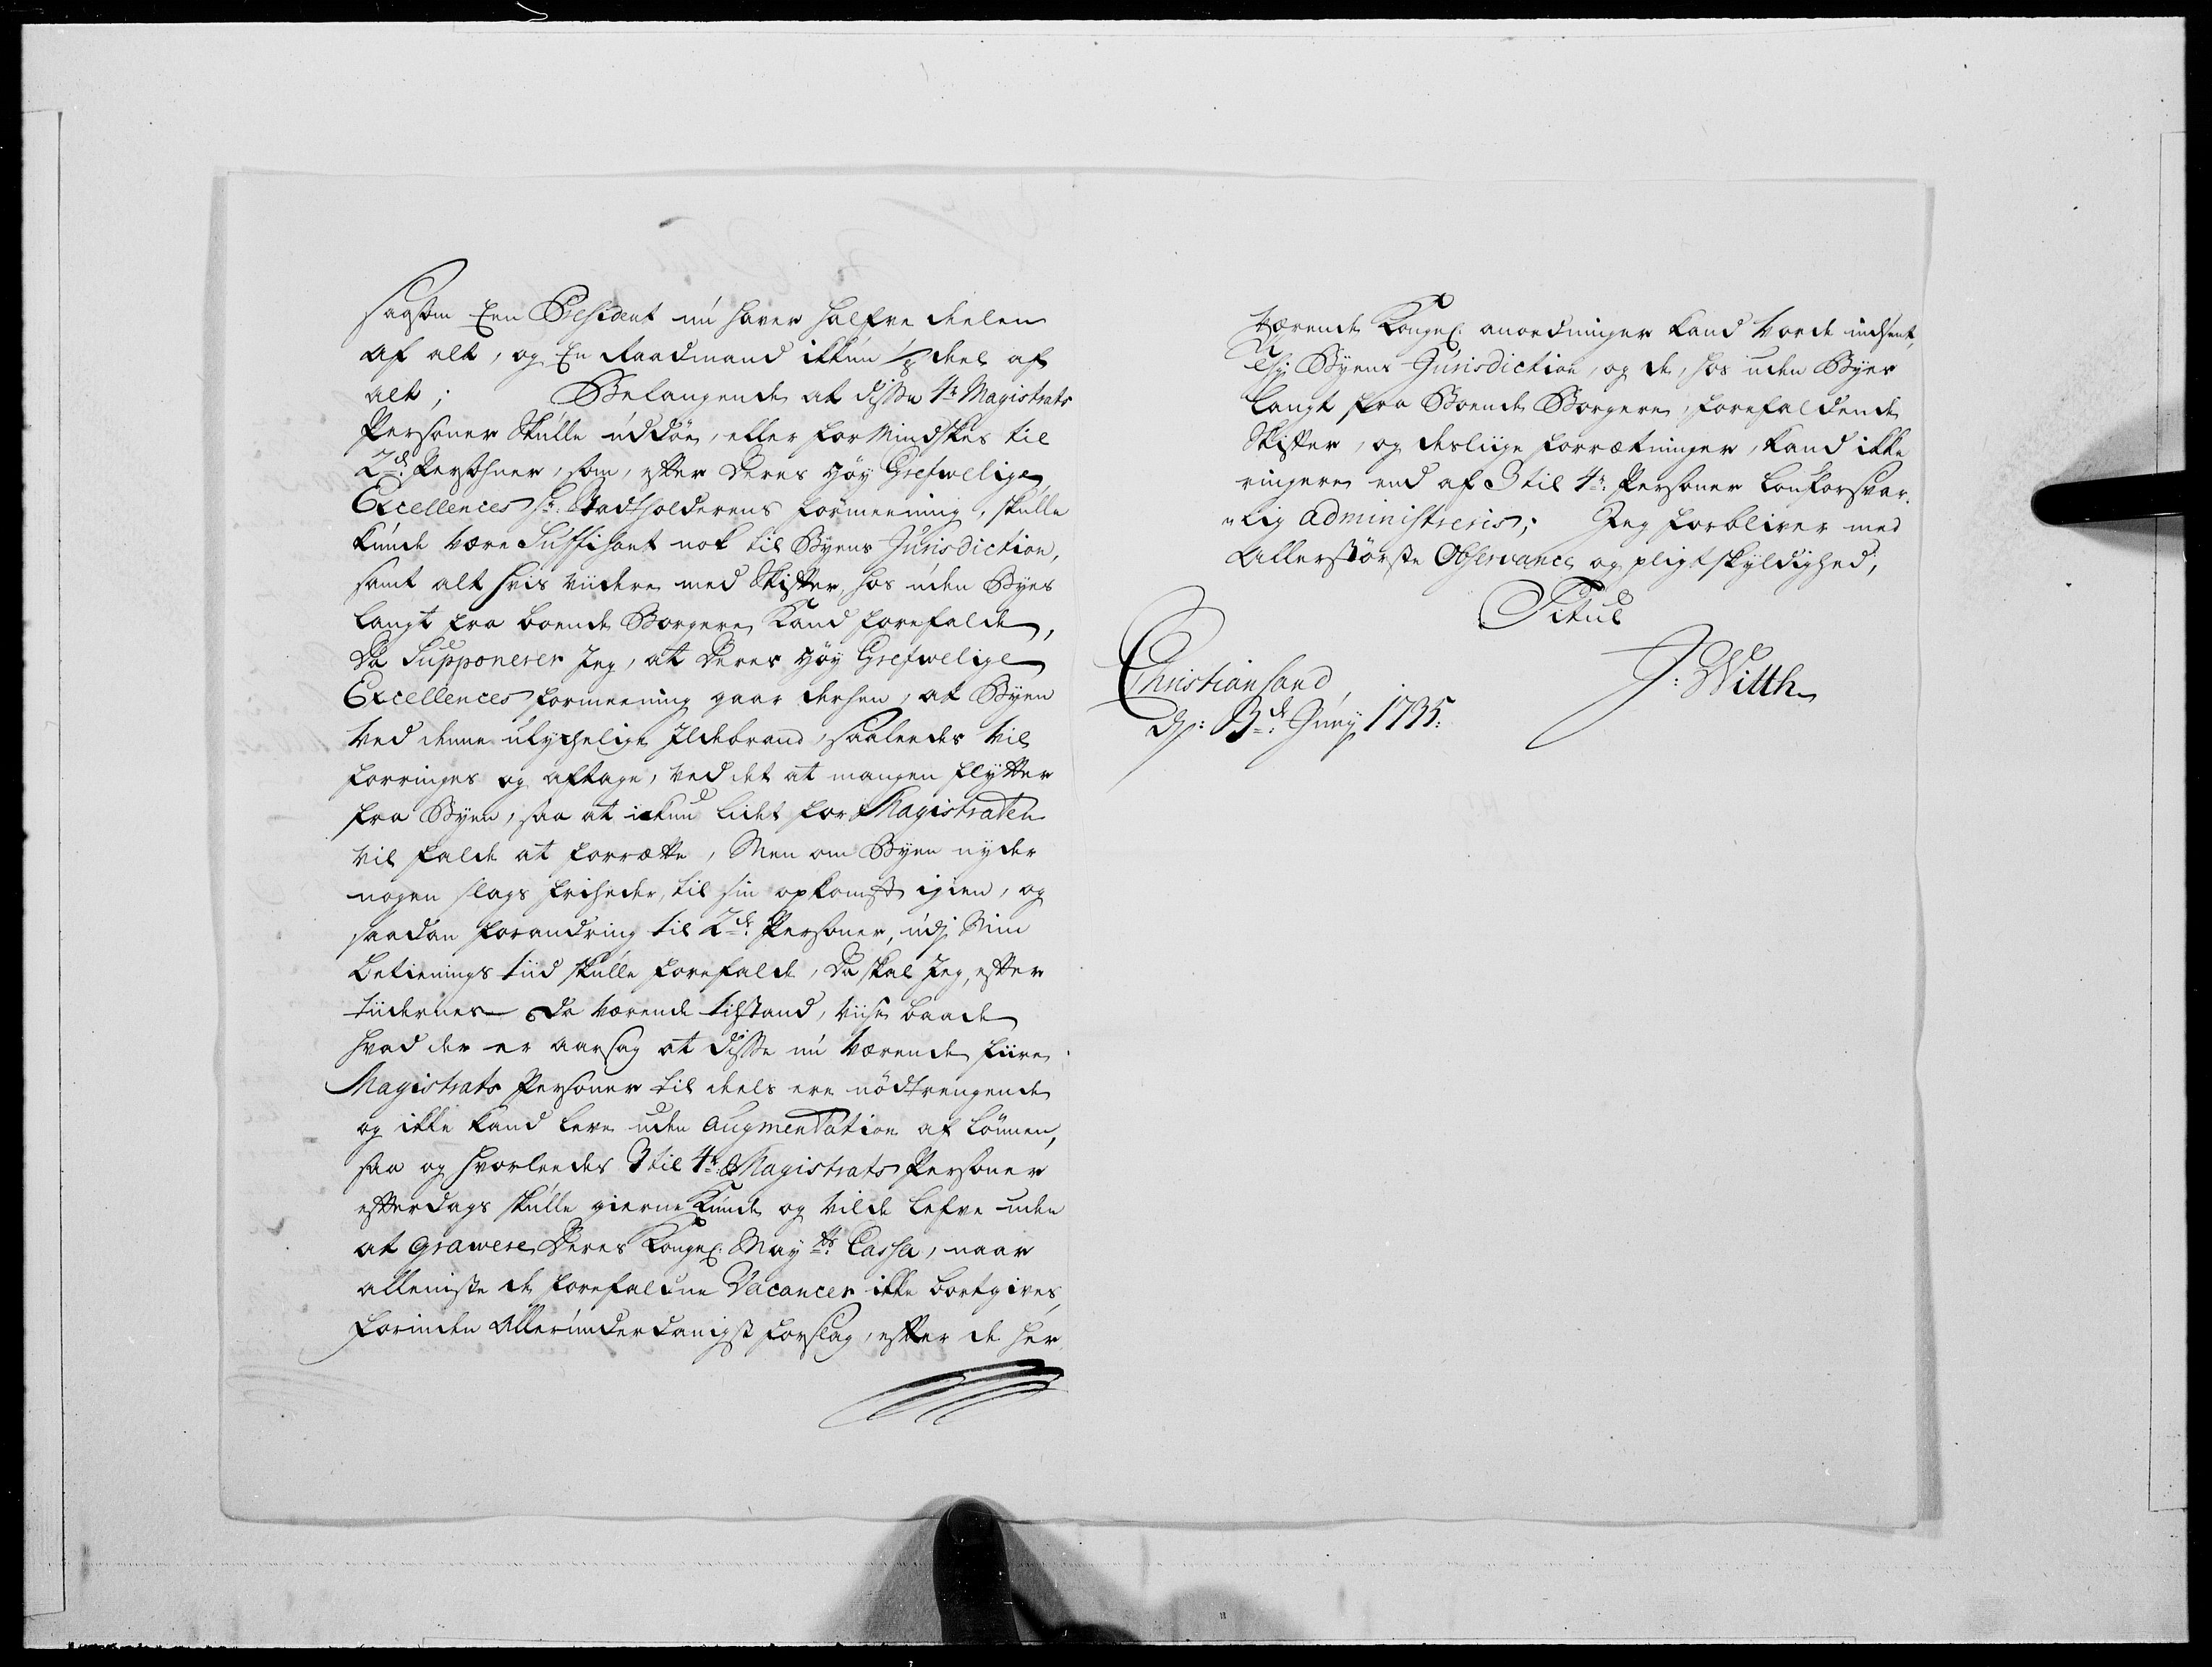 saasom Een President nu haver halfve deelen
af alt, og En Raadmand ikkun 1/8 deel af
alt; Belangende at disse 4r Magistrats
Personer Skulle uddöe, eller formindskes til
2de Persohner, som, efter Deres Höy Grefwelige
Excellences Hr Stadtholderens formeening, skulle
kunde være Suffisant nok til Byens Jurisdiction,
samt alt hvis viidere med Skifter, hos uden Byes
langt fra boende Borgere, Kand forefalde,
Da Supponerer Jeg, at Deres Höy Grefwelige
Excellences formeening gaar derhen, at Byen
ved denne ulychelige Ildebrand, saaleedes vil
forringes og aftage, ved det at mangen flytter
fra Byen, saa at ickun lidet for Magistraten
vil falde at forrætte, Men om Byen nyder
nogen slags friheder, til sin opkomst igien, og
saadan forandring til 2de Personer, udj Min
betienings tiid skulle forefalde, Da skal Jeg, efter
tiidernes da værende tilstand, viise baade
hvad der er aarsag at disse nu værende fiire
Magistrats Personer til deels ere nödtrengende
og ikke kand leve uden augmentation af lönnen,
saa og hvorleedes 3 til 4r Magistrats Personer
efterdags skulle gierne Kunde og vilde lefve uden
at grawere Deres Kongel: Mayts Cassa, naar
alleniste de forefaldne Vacancer ikke bortgives,
forinden Allerunderdanigst forslag, efter de her
værende Kongel: anordninger kand vorde indsent,
Thj Byens Jurisdiction, og de, hos uden Byes
langt fra Boende Borgere, forefaldende
Skifter, og desliige forrætninger, kand ikke
ringere end af 3 til 4r Personer
lig administreris; Jeg forbliver med
Allerstörste Observance og pligtskyldighed,
Titul
J: Witth
Christiansand
d: 3de Juny 1735: